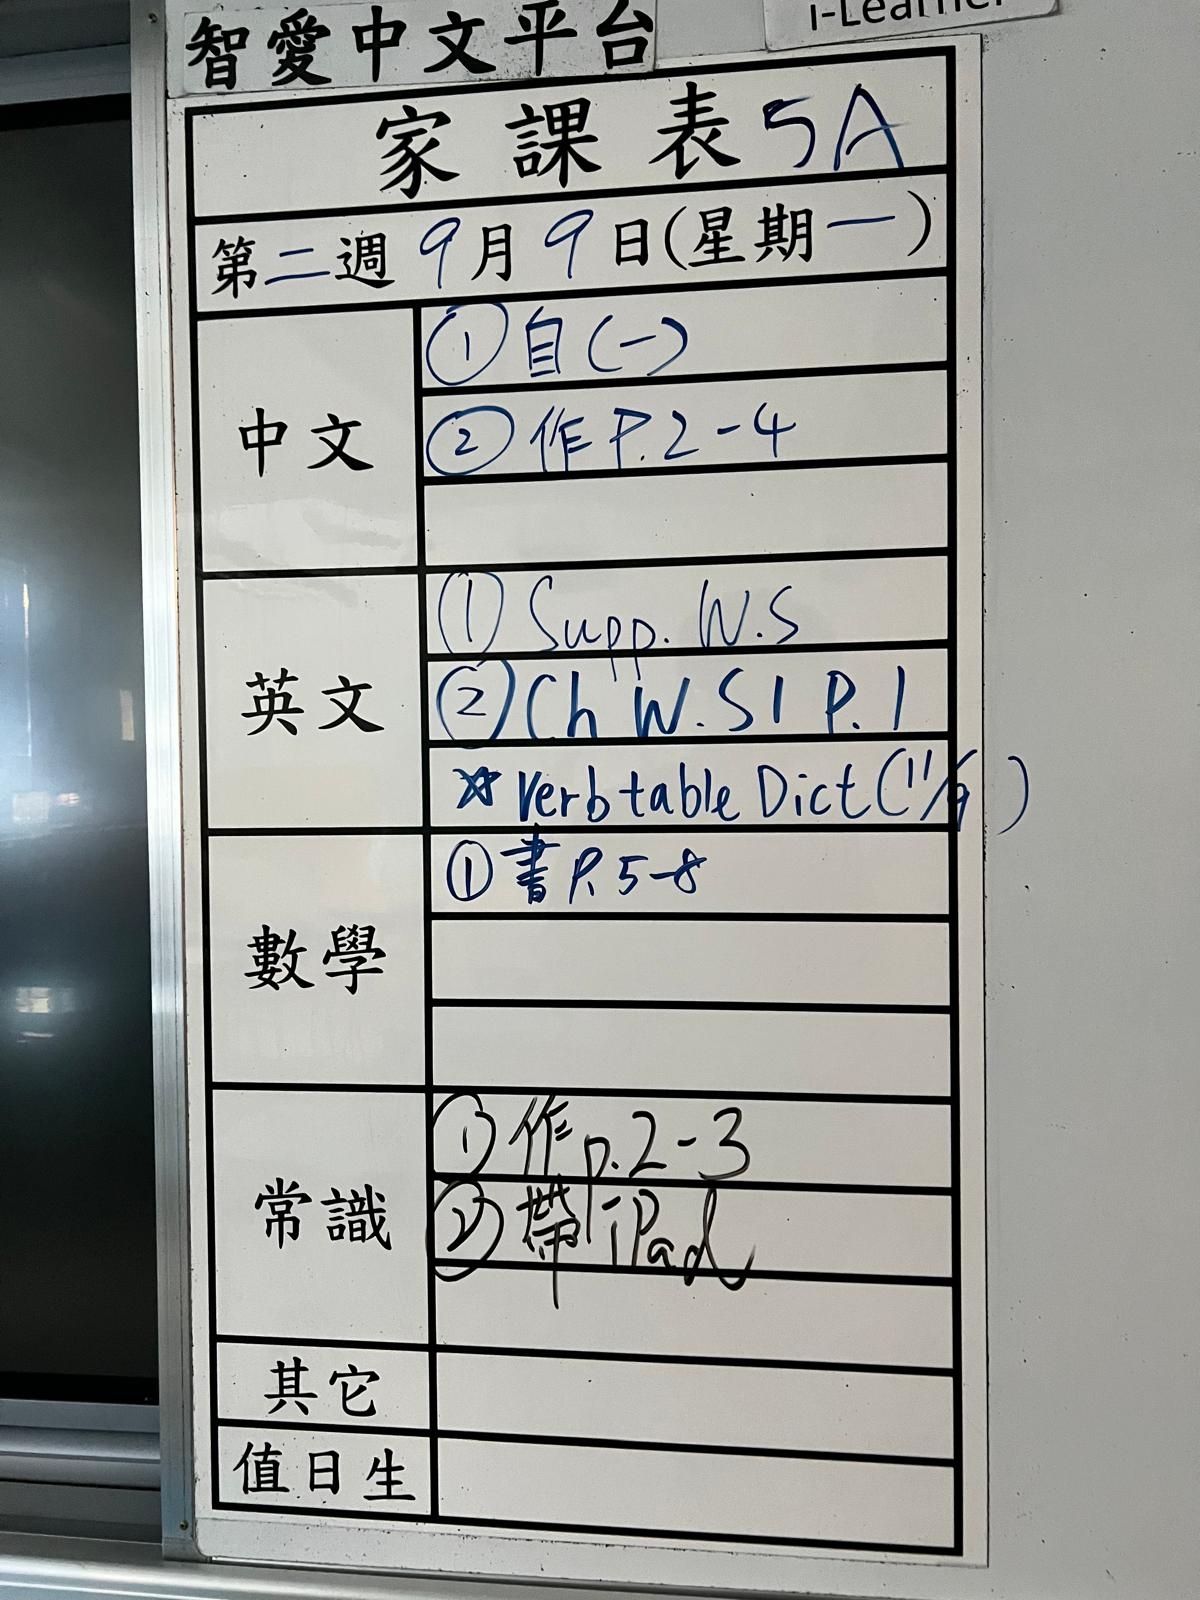 智愛中文平台
i-Learner
家課表 5A
第二週 9月9日(星期一)
中文
① 自(一)
② 作 P.2-4
英文
① Supp. W.S
② Ch W.S1 P.1
☆ Verb table Dict (11/9)
數學
① 書 P.5-8
常識
① 作 p.2-3
② 帶 iPad
其它
值日生